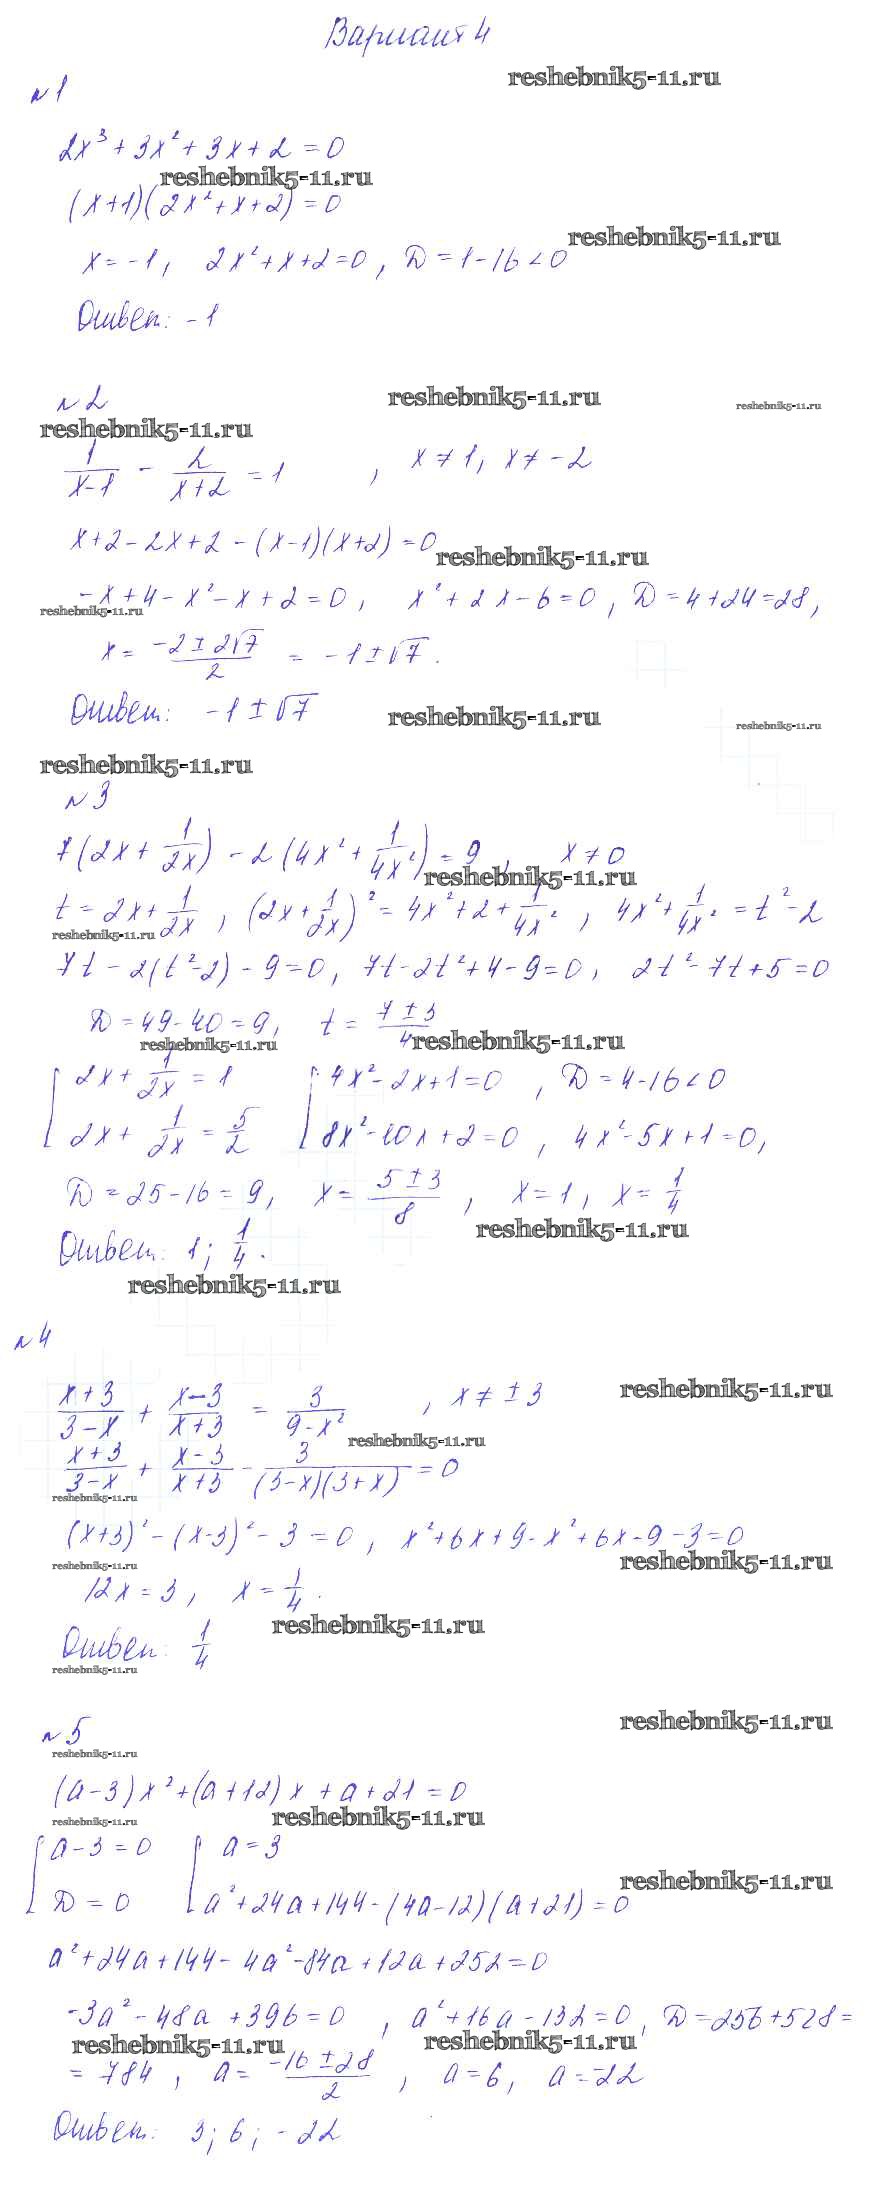 Вариант 4
reshebnik5-11.ru
№1
2x³ + 3x² + 3x + 2 = 0
reshebnik5-11.ru
(x+1)(2x² + x + 2) = 0
reshebnik5-11.ru
x = -1, 2x² + x + 2 = 0, D = 1 - 16 < 0
Ответ: -1
reshebnik5-11.ru
reshebnik5-11.ru
№2
reshebnik5-11.ru
1/(x-1) - 2/(x+2) = 1, x ≠ 1, x ≠ -2
x + 2 - 2x + 2 - (x-1)(x+2) = 0
reshebnik5-11.ru
-x + 4 - x² - x + 2 = 0, x² + 2x - 6 = 0, D = 4 + 24 = 28,
reshebnik5-11.ru
x = (-2 ± 2√7)/2 = -1 ± √7.
Ответ: -1 ± √7
reshebnik5-11.ru
reshebnik5-11.ru
reshebnik5-11.ru
№3
7(2x + 1/2x) - 2(4x² + 1/4x²) = 9, x ≠ 0
reshebnik5-11.ru
t = 2x + 1/2x, (2x + 1/2x)² = 4x² + 2 + 1/4x², 4x² + 1/4x² = t² - 2
reshebnik5-11.ru
7t - 2(t² - 2) - 9 = 0, 7t - 2t² + 4 - 9 = 0, 2t² - 7t + 5 = 0
D = 49 - 40 = 9, t = (7 ± 3)/4
reshebnik5-11.ru
reshebnik5-11.ru
[ 2x + 1/2x = 1 [ 4x² - 2x + 1 = 0, D = 4 - 16 < 0
2x + 1/2x = 5/2 8x² - 10x + 2 = 0, 4x² - 5x + 1 = 0,
D = 25 - 16 = 9, x = (5 ± 3)/8, x = 1, x = 1/4
reshebnik5-11.ru
Ответ: 1; 1/4.
reshebnik5-11.ru
№4
(x+3)/(3-x) + (x-3)/(x+3) = 3/(9-x²), x ≠ ± 3
reshebnik5-11.ru
reshebnik5-11.ru
(x+3)/(3-x) + (x-3)/(x+3) - 3/((3-x)(3+x)) = 0
reshebnik5-11.ru
(x+3)² - (x-3)² - 3 = 0, x² + 6x + 9 - x² + 6x - 9 - 3 = 0
reshebnik5-11.ru
reshebnik5-11.ru
12x = 3, x = 1/4.
reshebnik5-11.ru
Ответ: 1/4
reshebnik5-11.ru
reshebnik5-11.ru
№5
reshebnik5-11.ru
(a-3)x² + (a+12)x + a + 21 = 0
reshebnik5-11.ru
reshebnik5-11.ru
[ a - 3 = 0 [ a = 3
reshebnik5-11.ru
D = 0 a² + 24a + 144 - (4a - 12)(a + 21) = 0
a² + 24a + 144 - 4a² - 84a + 12a + 252 = 0
-3a² - 48a + 396 = 0, a² + 16a - 132 = 0, D = 256 + 528 =
reshebnik5-11.ru
reshebnik5-11.ru
= 784, a = (-16 ± 28)/2, a = 6, a = -22
Ответ: 3; 6; -22